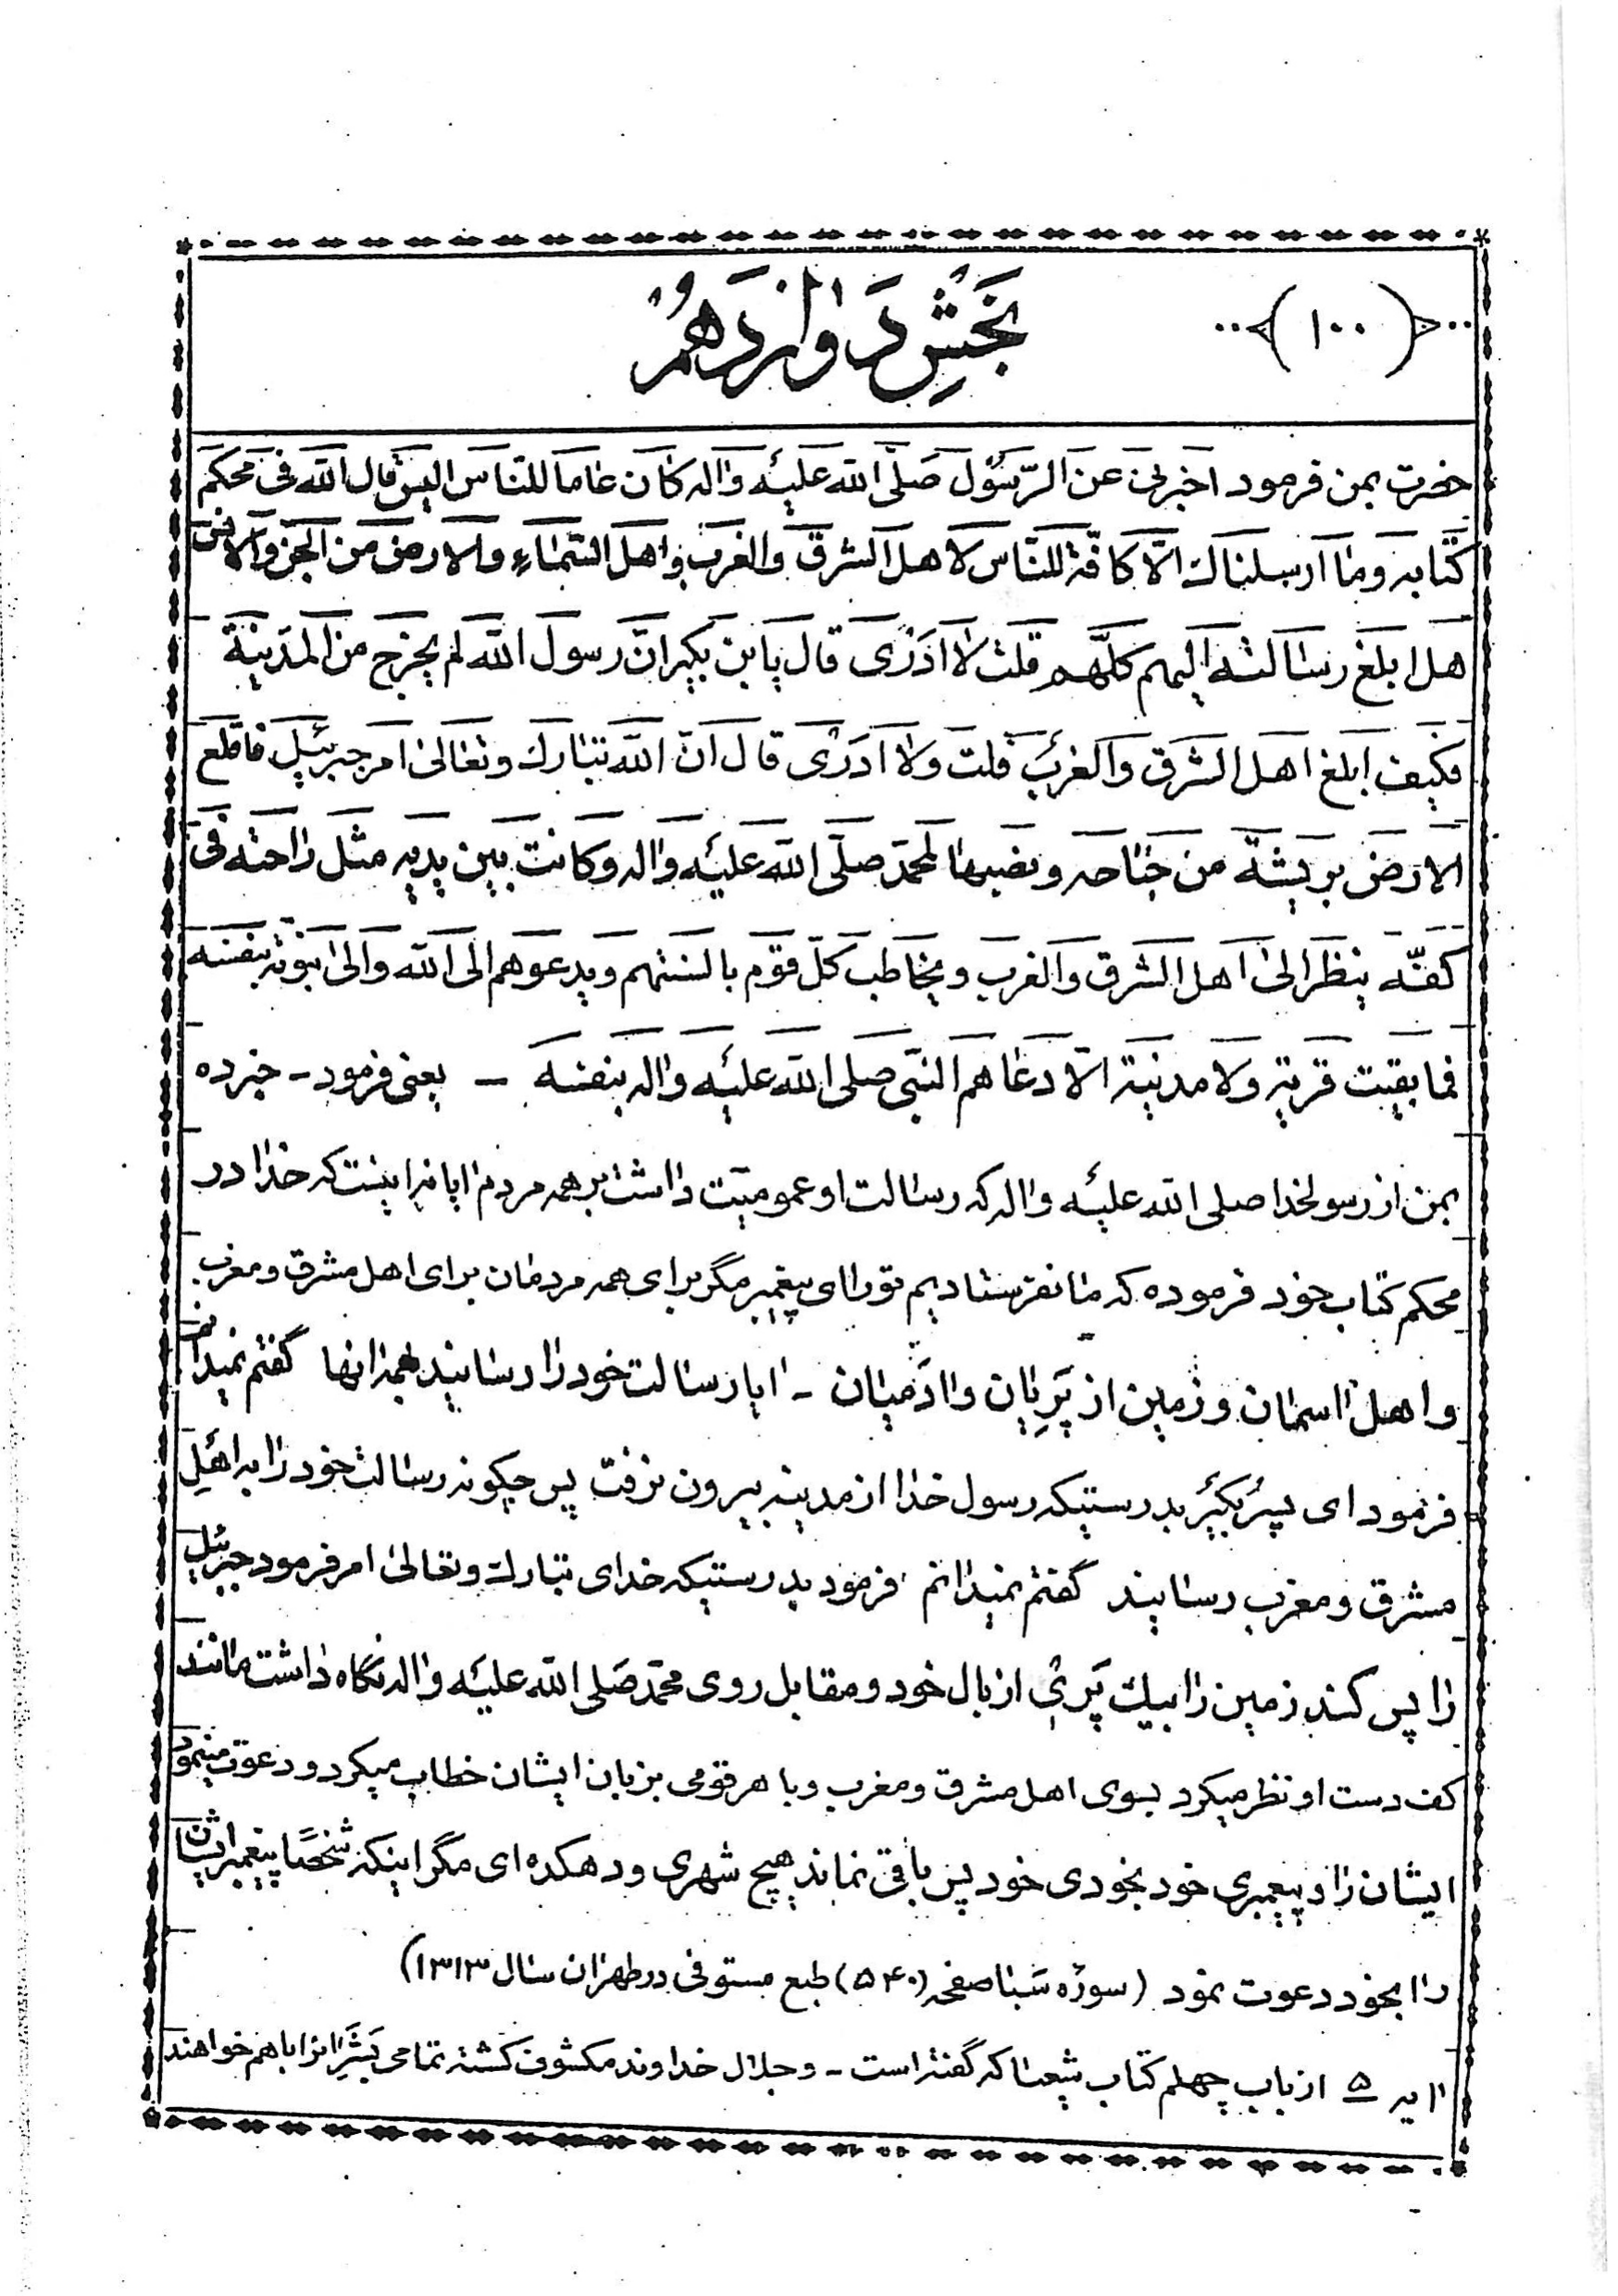 (۱۰۰)
بخش دوازدهم
حضرت بمن فرمود اخبرنی عن الرّسول صلّی الله علیه واله کان عاما للنّاس الیس قال الله فی محکم
کتابه وما ارسلناک الّا کافّة للنّاس لاهل الشرق والغرب واهل السّماء والارض من الجن والانس
هل ابلغ رسالته الیهم کلّهم قلت لا ادری قال یابن بکیر انّ رسول الله لم یخرج من المدینة
فکیف ابلغ اهل الشرق والغرب قلت ولا ادری قال انّ الله تبارک وتعالی امر جبرئیل فاقلع
الارض بریشة من جناحه ونصبها لمحمّد صلّی الله علیه واله وکانت بین یدیه مثل راحته فی
کفّه ینظر الی اهل الشرق والغرب ویخاطب کلّ قوم بالسنتهم ویدعوهم الی الله والی نبوته بنفسه
فما بقیت قریة ولا مدینة الّا دعاهم النبی صلی الله علیه واله بنفسه – یعنی فرمود – خبر ده
بمن از رسولخدا صلی الله علیه واله که رسالت او عمومیّت داشت بر همه مردم ایا نه اینست که خدا در
محکم کتاب خود فرموده که ما نفرستادیم تو را ای پیغمبر مگر برای همه مردمان برای اهل مشرق و مغرب
و اهل اسمان و زمین از پَرِیان و ادَمیان – ایا رسالت خود را رسانید بهمه انها گفتم نمیدانم
فرمود ای پسُر بکیُر بدرستیکه رسول خدا از مدینه بیرون نرفت پس چکونه رسالت خود را به اهلِ
مشرق و مغرب رسانید گفتم نمیدانم فرمود بدرستیکه خدای تبارک وتعالی امر فرمود جبرئیل
را پس کند زمین را بیک پَری از بال خود و مقابل روی محمّد صَلی الله علیه واله نگاه داشت مانند
کف دست او نظر میکرد بسوی اهل مشرق و مغرب و با هر قومی بزبان ایشان خطاب میکرد و دعوت مینمود
ایشان را و پیغمبری خود بخودی خود پس باقی نماند هیچ شهری و دهکده ای مگر اینکه شخصًا پیغمبر ایشان
را بخود دعوت نمود (سوره سَبَا صفحه (۵۴۰) طبع مستوفی در طهران سال ۱۳۱۳)
ایه ۵ از باب چهلم کتاب شِعیا که گفته است – و جلال خداوند مکشوف کشته تمامی بَشَر انرا باهم خواهند